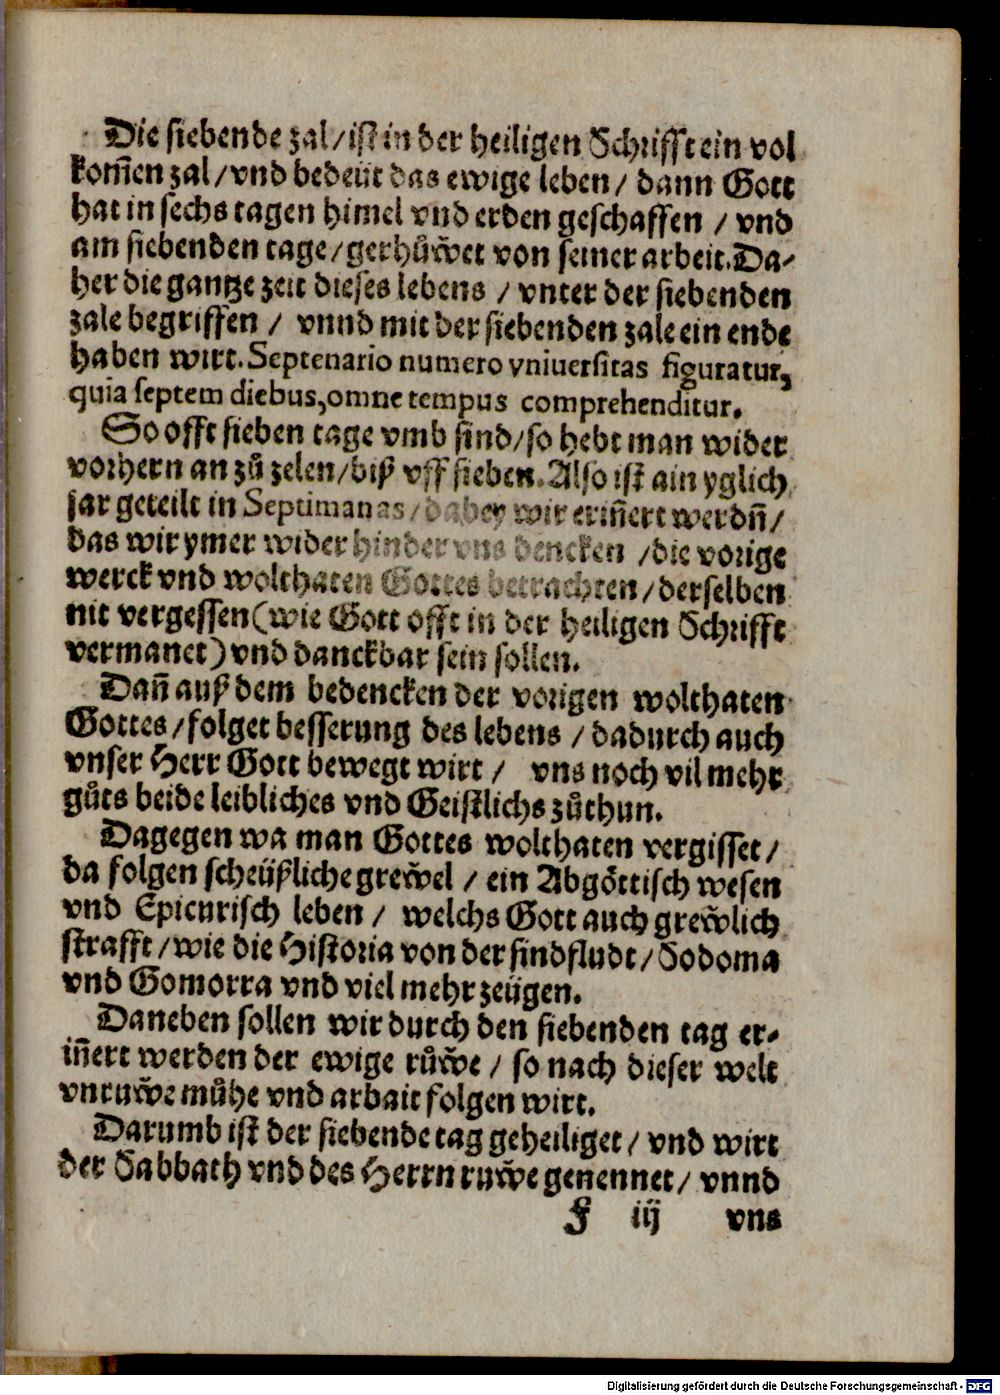 Die siebende zal/ist in der heiligen Schrifft ein vol
kom̃en zal/vnd bedeüt das ewige leben/ dann Gott
hat in sechs tagen himel vnd erden geschaffen / vnd
am siebenden tage/gerhůw̆et von seiner arbeit.Da-
her die gantze zeit dieses lebens / vnter der siebenden
zale begriffen / vnnd mit der siebenden zale ein ende
haben wirt. Septenario numero vniuersitas figuratur,
quia septem diebus,omne tempus comprehenditur.
So offt sieben tage vmb sind/so hebt man wider
vorhern an zů zelen/biß vff sieben.Also ist ain yglich
jar geteilt in Septimanas/dabey wir erin̄ert werdn̄/
das wir ymer wider hinder vns dencken /die vorige
werck vnd wolthaten Gottes betrachten/derselben
nit vergessen(wie Gott offt in der heiligen Schrifft
vermanet)vnd danckbar sein sollen.
Dan̄ auß dem bedencken der vorigen wolthaten
Gottes/folget besserung des lebens / dadurch auch
vnser Herr Gott bewegt wirt / vns noch vil mehr
gůts beide leibliches vnd Geistlichs zůthun.
Dagegen wa man Gottes wolthaten vergisset/
da folgen scheüßliche grew̆el / ein Abgöttisch wesen
vnd Epicurisch leben / welchs Gott auch grew̆lich
strafft/wie die Historia von der sindfludt/Sodoma
vnd Gomorra vnd viel mehr zeügen.
Daneben sollen wir durch den siebenden tag er-
in̄ert werden der ewige růw̆e / so nach dieser welt
vnruw̆e mühe vnd arbait folgen wirt.
Darumb ist der siebende tag geheiliget/ vnd wirt
der Sabbath vnd des Herrn ruw̆e genennet/ vnnd
F iij vns
Digitalisierung gefördert durch die Deutsche Forschungsgemeinschaft - DFG